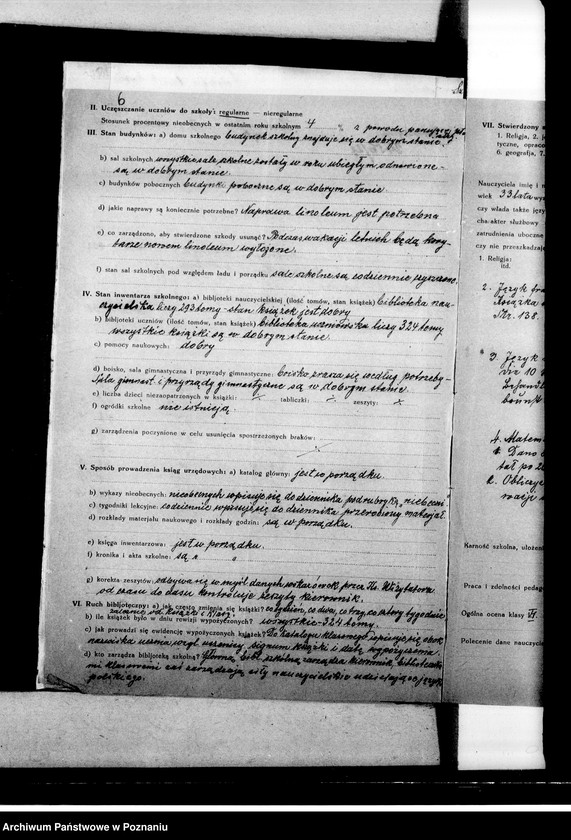 6
II. Uczęszczanie uczniów do szkoły: regularne — nieregularne
Stosunek procentowy nieobecnych w ostatnim roku szkolnym 4 % z powodu
III. Stan budynków: a) domu szkolnego budynek szkolny znajduje się w dobrym stanie.
b) sal szkolnych wszystkie sale szkolne zostały w roku ubiegłym odnowione -
są w dobrym stanie.
c) budynków pobocznych budynki poboczne są w dobrym stanie
d) jakie naprawy są koniecznie potrzebne? Naprawa linoleum jest potrzebna
e) co zarządzono, aby stwierdzone szkody usunąć? Podczas wakacji letnich będą kory-
tarze nowem linoleum wyłożone.
f) stan sal szkolnych pod względem ładu i porządku sale szkolne są codziennie czyszczone.
IV. Stan inwentarza szkolnego: a) biblioteki nauczycielskiej (ilość tomów, stan książek) biblioteka nau-
czycielska liczy 293 tomy - stan książek jest dobry
b) biblioteki uczniów (ilość tomów, stan książek) biblioteka uczniowska liczy 324 tomy
wszystkie książki są w dobrym stanie.
c) pomocy naukowych: dobry
d) boisko, sala gimnastyczna i przyrządy gimnastyczne: boisko się według potrzeby -
Sala gimnast. i przyrządy gimnastyczne są w dobrym stanie.
e) liczba dzieci niezaopatrzonych w książki: tabliczki: zeszyty:
f) ogródki szkolne nie istnieją.
g) zarządzenia poczynione w celu usunięcia spostrzeżonych braków:
V. Sposób prowadzenia ksiąg urzędowych: a) katalog główny: jest w porządku.
b) wykazy nieobecnych: nieobecnych wpisuje się do dziennika pod rubryką "nieobecni"
c) tygodniki lekcyjne: codziennie wpisuje się do dziennika przerobiony materjał.
d) rozkłady materjału naukowego i rozkłady godzin: są w porządku.
e) księga inwentarzowa: jest w porządku.
f) kronika i akta szkolne: są " "
g) korekta zeszytów: odbywa się w myśl danych wskazówek przez Wizytatora
od czasu do czasu kontroluje zeszyty kierownik.
VI. Ruch bibljoteczny: a) jak często zmienia się książki? co tydzień, co dwa, co trzy, co cztery tygodnie
b) ile książek było w dniu rewizji wypożyczonych? wszystkie - 324 tomy.
c) jak prowadzi się ewidencję wypożyczonych książek? Do katalogu klasowego wpisuje się obok
nazwiska ucznia, wzgl. uczenicy, signum książki i datę wypożyczenia.
d) kto zarządza bibljoteką szkolną? Główną bibl. szkolną zarządza kierownik, bibliotecz-
mi klasowemi zaś zarządzają siły nauczycielskie udzielające języka
polskiego.
VII. Stwierdzony
1. Religja, 2.
tyczne,
6. geografja, 7.
Nauczyciela imię i
wiek 33 lata
czy włada także
charakter służbowy
zatrudnienia
czy nie przeszkadzają
1. Religja:
itd.
2. Język
Str. 138.
3. Język
4. Matem
Dano
2. Oblicze
Karność szkolna,
Praca i zdolności
Ogólna ocena klasy VI.
Polecenie dane
Archiwum Państwowe w Poznaniu